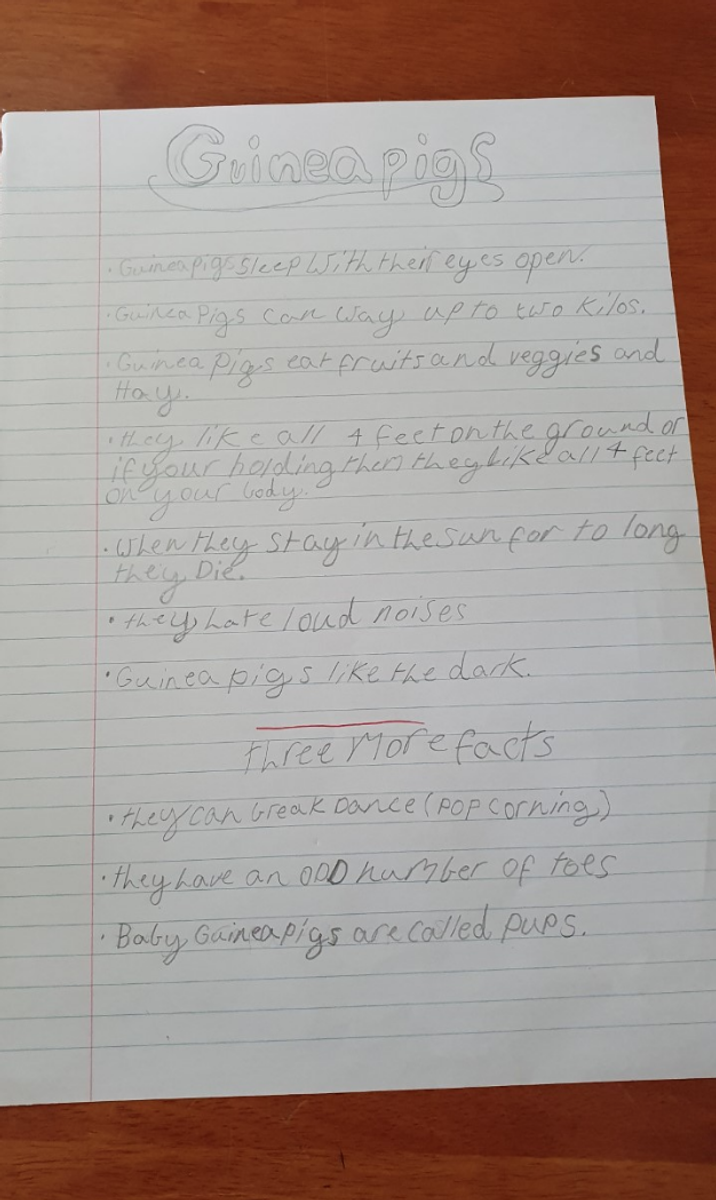 Guinea pigs
· Guinea pigs sleep with their eyes open.
· Guinea Pigs can way up to two kilos.
· Guinea Pigs eat fruits and veggies and
Hay.
· they like all 4 feet on the ground or
if your holding them they like all 4 feet
on your body.
· when they stay in the sun for to long
they Die.
· they hate loud noises
· Guinea pigs like the dark.
three More facts
· they can break Dance (POP corning)
· they have an ODD number of toes
· Baby Guinea pigs are called pups.